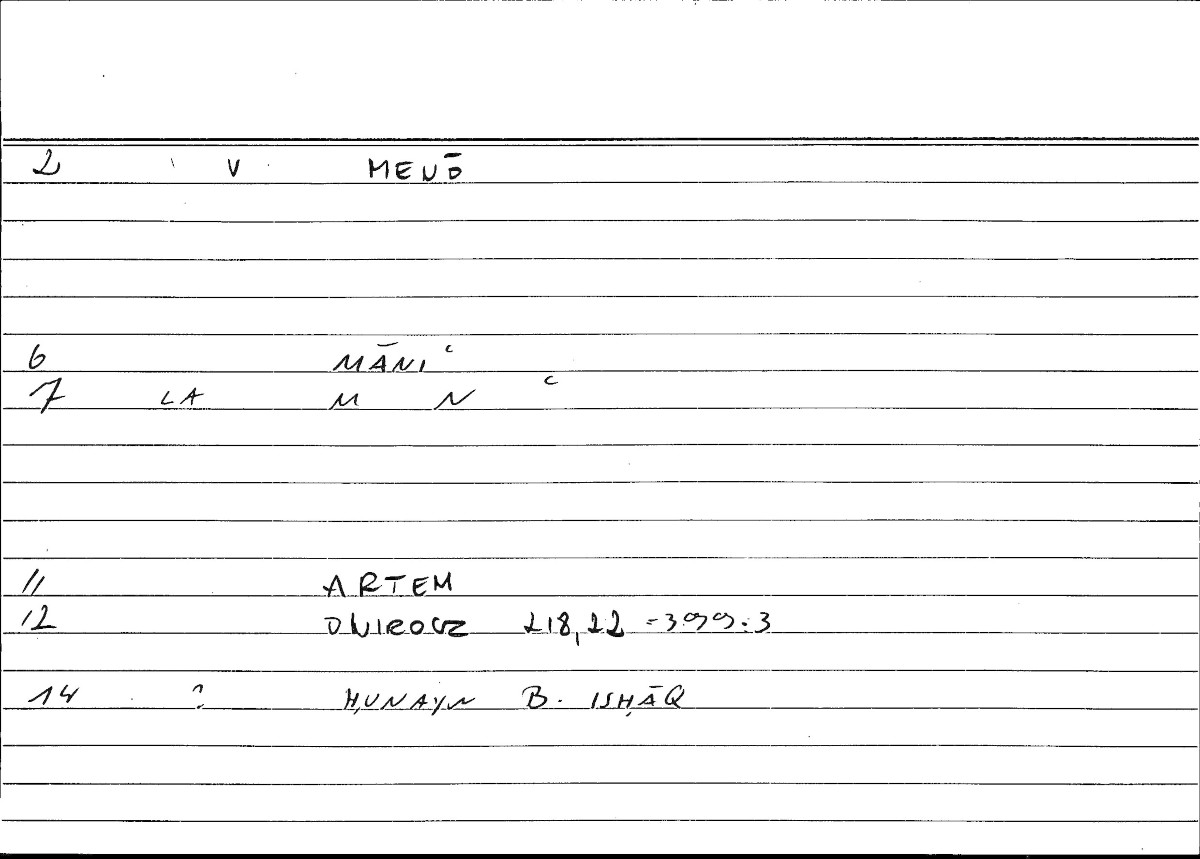 2 V MENŌ
6 MĀNIʿ
7 LA M N ʿ
11 ARTEM
12 218,22 = 399.3
14 ? ḤUNAYN B. ISḤĀQ